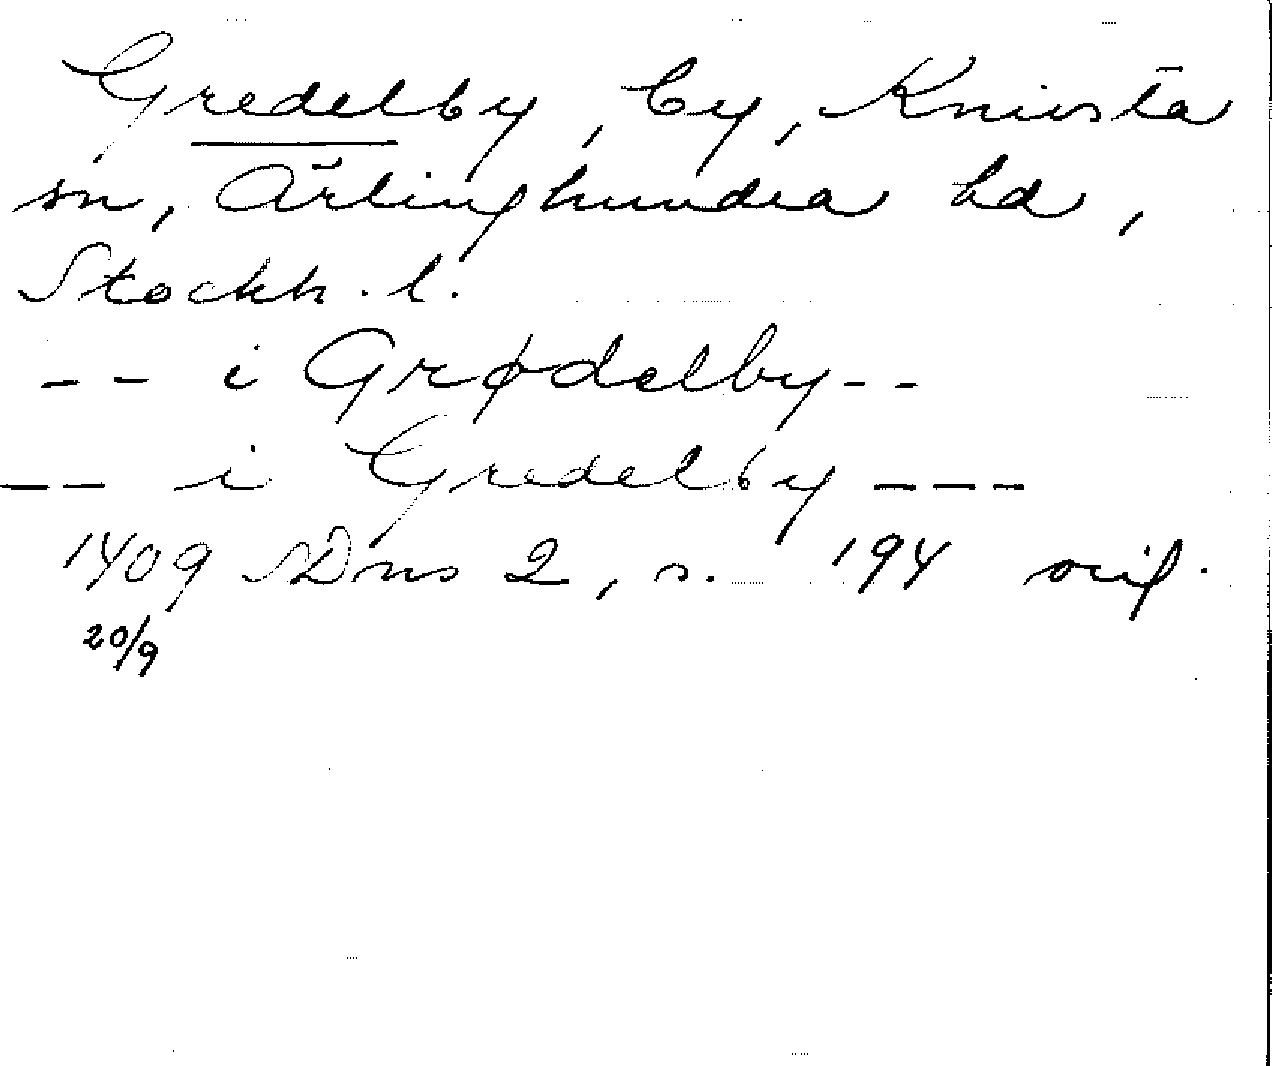 Gredelby, by, Knivsta
sn, Ärlinghundra hd,
Stockh. l.
-- i Grødelby--
-- i Gredelby ---
1409 SDns 2, s. 194 orig.
20/9